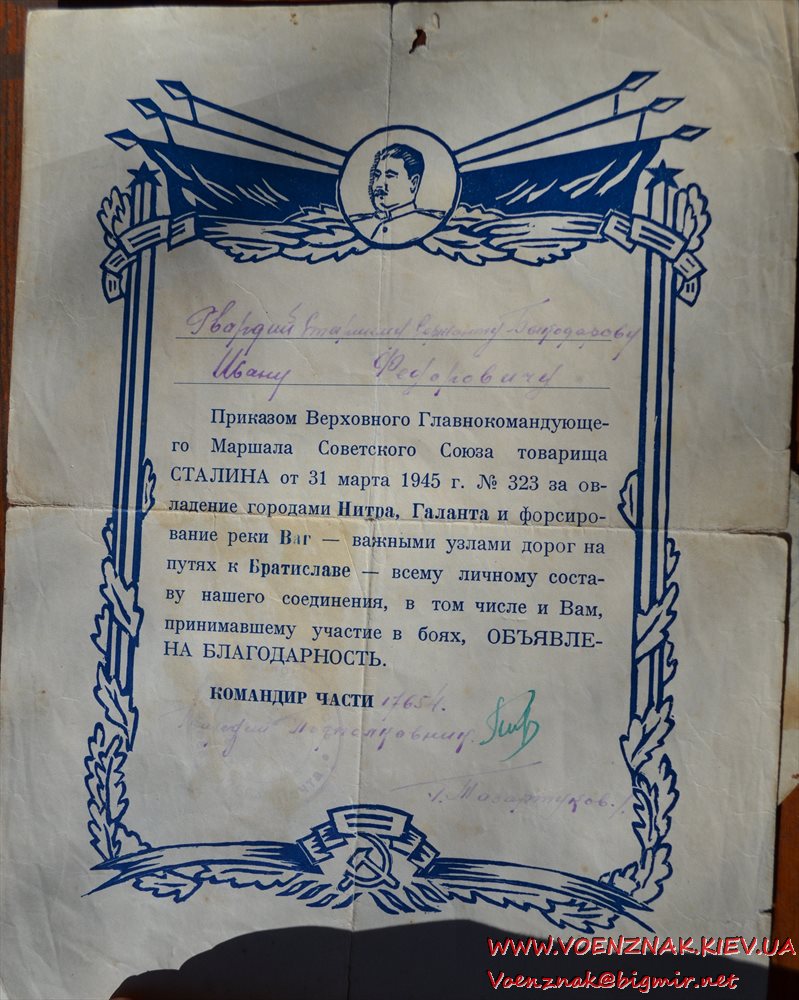 Гвардии Старшему Сержанту
Ивану Федоровичу
Приказом Верховного Главнокомандующе-
го Маршала Советского Союза товарища
СТАЛИНА от 31 марта 1945 г. № 323 за ов-
ладение городами Нитра, Галанта и форсиро-
вание реки Ваг — важными узлами дорог на
путях к Братиславе — всему личному соста-
ву нашего соединения, в том числе и Вам,
принимавшему участие в боях, ОБЪЯВЛЕ-
НА БЛАГОДАРНОСТЬ.
КОМАНДИР ЧАСТИ
Гвардии Подполковник
WWW.VOENZNAK.KIEV.UA
Voenznak@bigmir.net